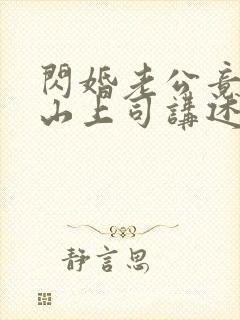 閃婚老公竟
山上司講述
靜言思